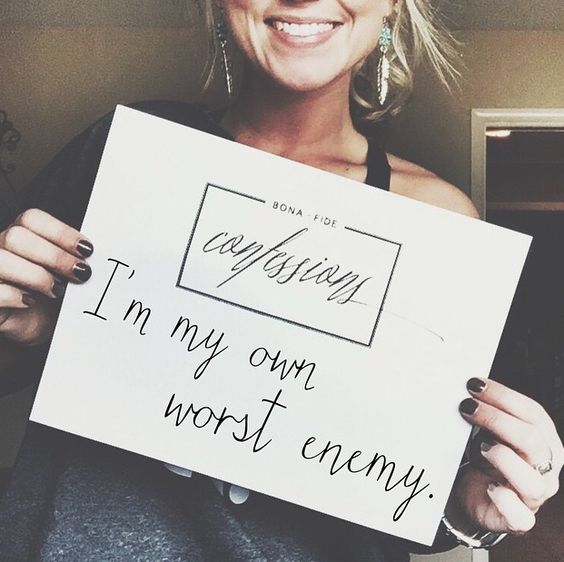 BONA · FIDE
confessions
I'm my own
worst enemy.